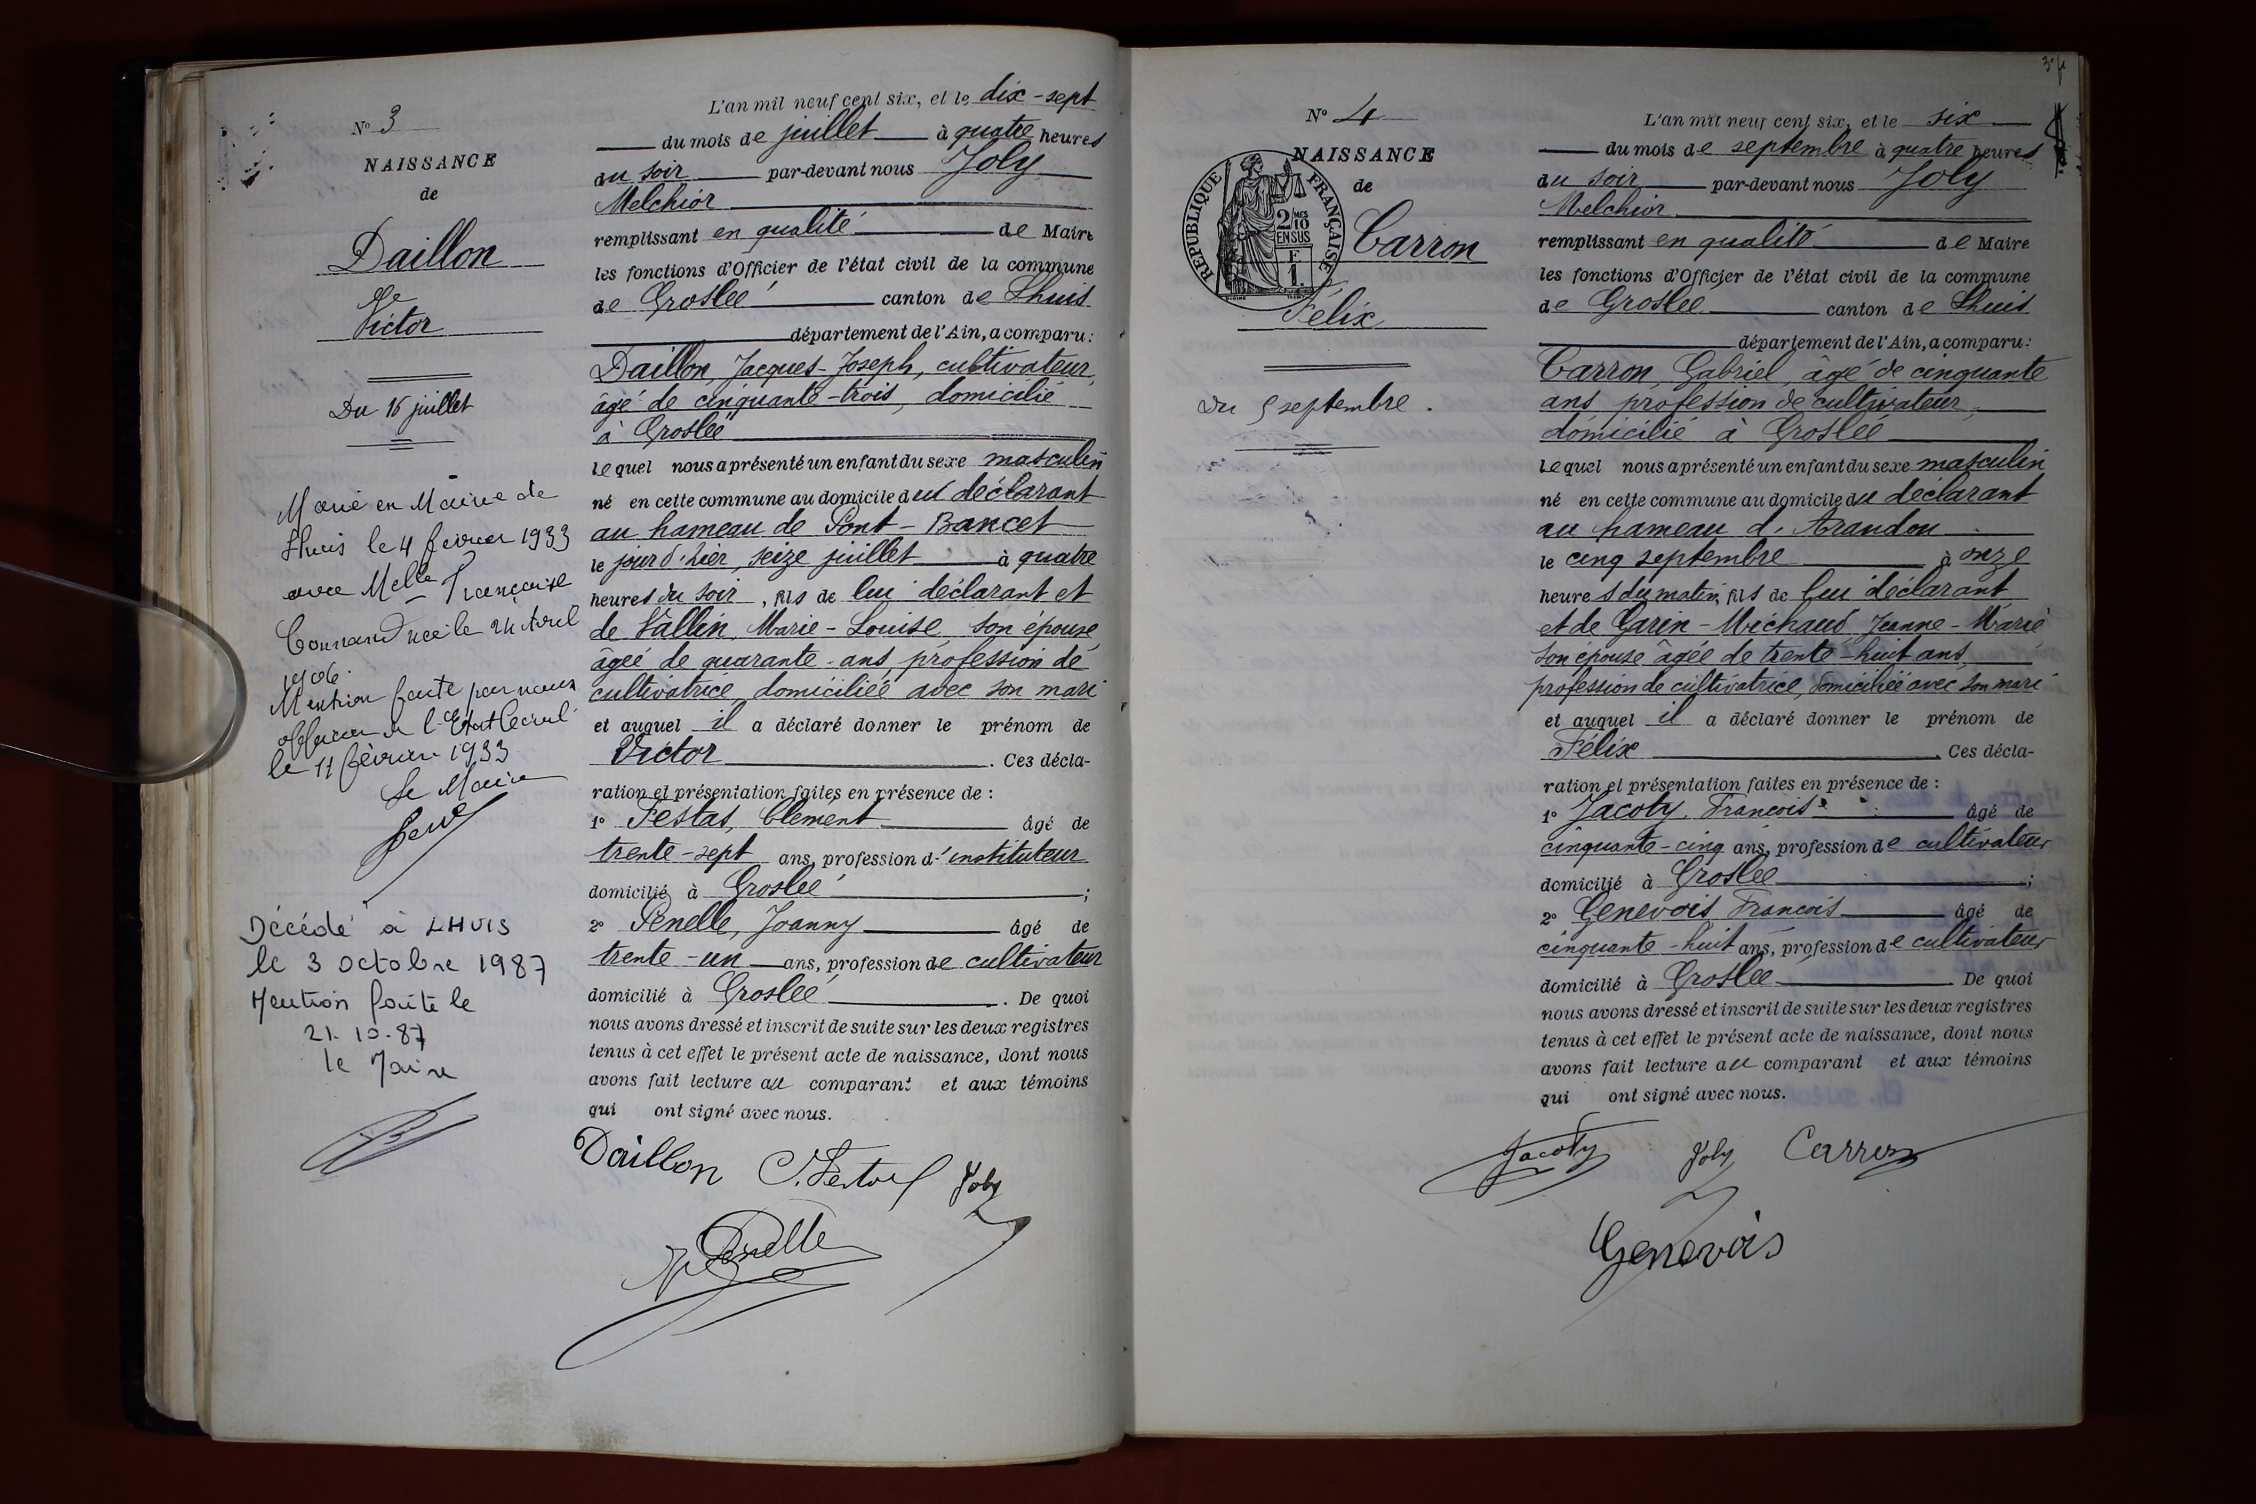 N° 3
NAISSANCE
de
Daillon
Victor
Du 16 juillet
Marié en Mairie de
Lhuis le 4 février 1933
avec Melle Françoise
née le 24 Avril
1906.
Mention faite par nous
officier de l'Etat Civil
le 11 février 1933
Le Maire
Décédé à LHUIS
le 3 octobre 1987
Mention faite le
21-10-87
le Maire
L'an mil neuf cent six, et le dix-sept
du mois de juillet à quatre heures
du soir par-devant nous Joly
Melchior
remplissant en qualité de Maire
les fonctions d'Officier de l'état civil de la commune
de Groslée canton de Lhuis
département de l'Ain, a comparu:
Daillon, Jacques-Joseph, cultivateur,
âgé de cinquante-trois, domicilié
à Groslée
lequel nous a présenté un enfant du sexe masculin
né en cette commune au domicile du déclarant
au hameau de Pont-Bancet
le jour d'hier, seize juillet à quatre
heures du soir, fils de lui déclarant et
de Vallin, Marie-Louise, son épouse
âgée de quarante-ans, profession de
cultivatrice, domiciliée avec son mari
et auquel il a déclaré donner le prénom de
Victor. Ces décla-
ration et présentation faites en présence de :
1° Festas, Clément âgé de
trente-sept ans, profession d'instituteur
domicilié à Groslée ;
2° Penelle, Joanny âgé de
trente-un ans, profession de cultivateur
domicilié à Groslée. De quoi
nous avons dressé et inscrit de suite sur les deux registres
tenus à cet effet le présent acte de naissance, dont nous
avons fait lecture au comparant et aux témoins
qui ont signé avec nous.
Daillon C. Festas Joly
Penelle
N° 4
NAISSANCE
de
REPUBLIQUE FRANÇAISE
2/10 MES
EN SUS
F
1.
Carron
Félix
Du 5 septembre.
L'an mil neuf cent six, et le six
du mois de septembre à quatre heures
du soir par-devant nous Joly
Melchior
remplissant en qualité de Maire
les fonctions d'Officier de l'état civil de la commune
de Groslée canton de Lhuis
département de l'Ain, a comparu:
Carron, Gabriel, âgé de cinquante
ans profession de cultivateur,
domicilié à Groslée
lequel nous a présenté un enfant du sexe masculin
né en cette commune au domicile du déclarant
au hameau d'Arandon
le cinq septembre à onze
heures du matin, fils de lui déclarant
et de Garin-Michaud Jeanne-Marie
son épouse âgée de trente-huit ans,
profession de cultivatrice, domiciliée avec son mari
et auquel il a déclaré donner le prénom de
Félix. Ces décla-
ration et présentation faites en présence de :
1° Jacoty, François âgé de
cinquante-cinq ans, profession de cultivateur
domicilié à Groslée ;
2° Genevois François âgé de
cinquante-huit ans, profession de cultivateur
domicilié à Groslée. De quoi
nous avons dressé et inscrit de suite sur les deux registres
tenus à cet effet le présent acte de naissance, dont nous
avons fait lecture au comparant et aux témoins
qui ont signé avec nous.
Jacoty Joly Carron
Genevois